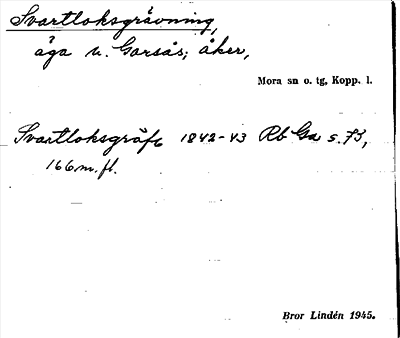 Svartloksgrävning,
äga u. Garsås; åker,
Mora sn o. tg, Kopp. l.
Svartloksgräft 1842-43 Rb Ga s. 75,
166 m. fl.
Bror Lindén 1945.